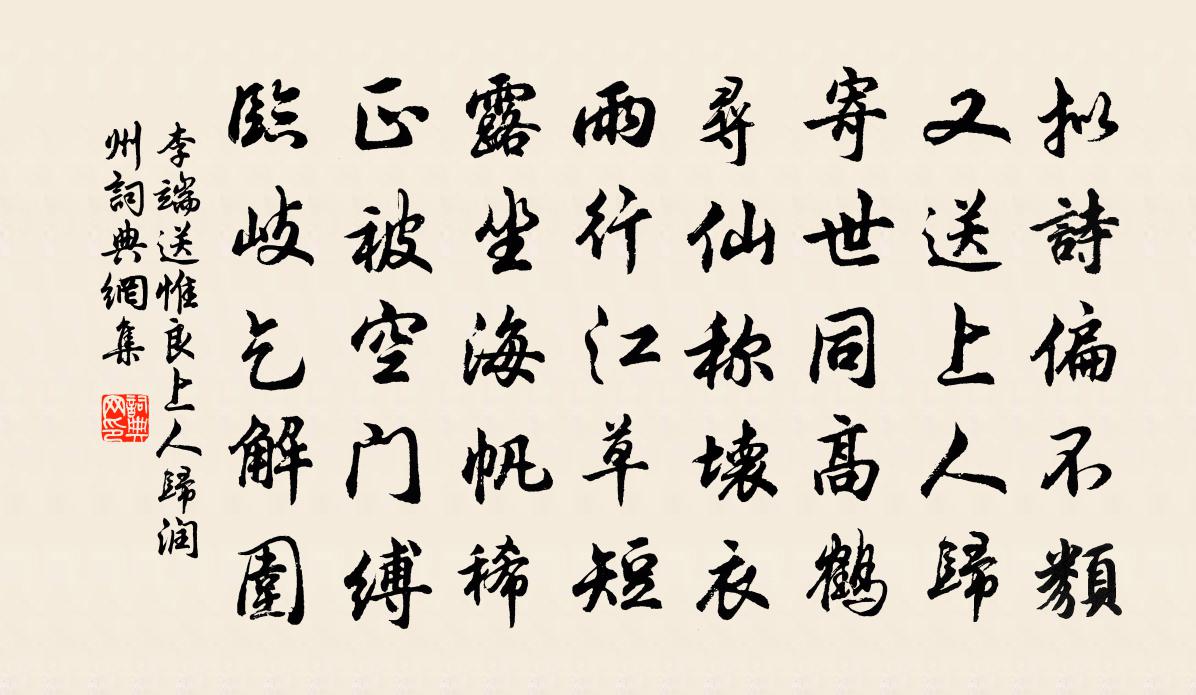 拟詩偏不類
又送上人歸
寄世同高鶴
尋仙称壞衣
雨行江草短
露坐海帆稀
正被空门縛
臨岐乞解圍
李端送惟良上人歸润
州詞典網集
詞典
网印